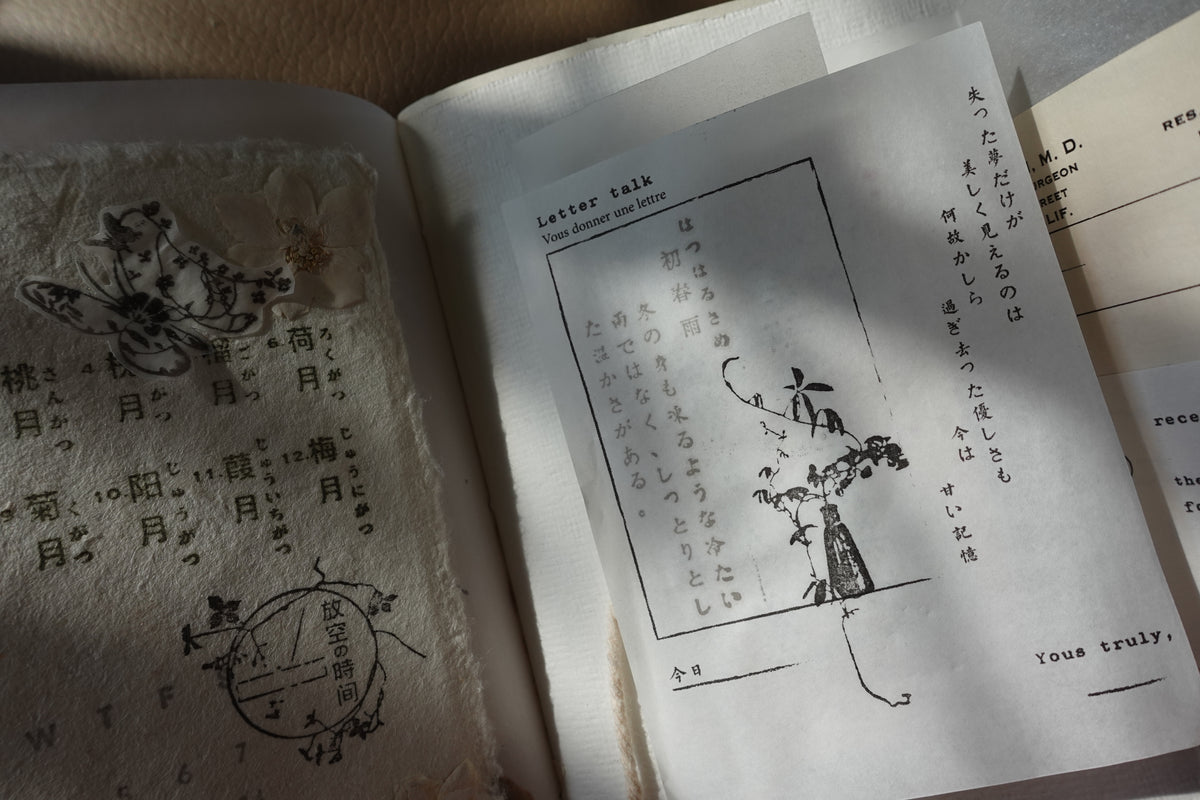 桃月
さんがつ
4
月
がつ
榴月
ごがつ
6.
荷月
ろくがつ
9
菊月
くがつ
10.
阳月
じゅうがつ
11.
葭月
じゅういちがつ
12.
梅月
じゅうにがつ
放空の時间
W T F
5 6 7
Letter talk
Vous donner une lettre
はつはるさめ
初春雨
冬の身も凍るような冷たい
雨ではなく、しっとりとし
た温かさがある。
今日
失った夢だけが
美しく見えるのは
何故かしら
過ぎ去った優しさも
今は
甘い記憶
Yous truly,
, M. D.
URGEON
REET
LIF.
RES
rece
the
fo